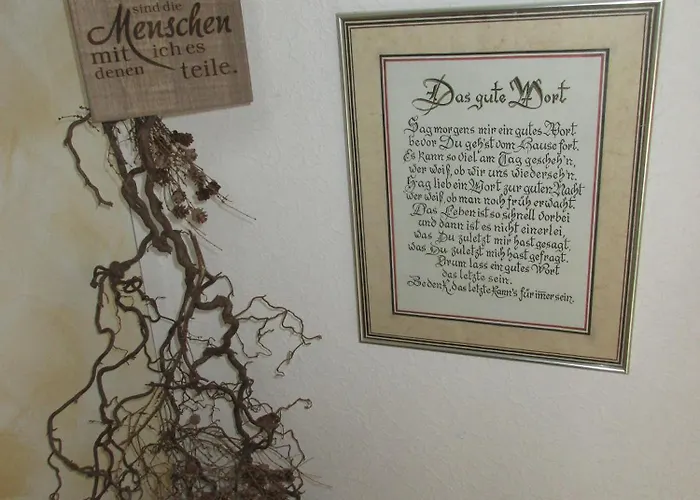 sind die
Menschen
mit ich es
denen teile.
Das gute Wort
Sag morgens mir ein gutes Wort
bevor Du gehst vom Hause fort.
Es kann so viel am Tag gescheh'n,
wer weiß, ob wir uns wiederseh'n.
Sag lieb ein Wort zur guten Nacht
wer weiß, ob man noch früh erwacht.
Das Leben ist so schnell vorbei
und dann ist es nicht einerlei,
was Du zuletzt mir hast gesagt,
was Du zuletzt mich hast gefragt.
Drum lass ein gutes Wort
das letzte sein.
Bedenk, das letzte kann's für immer sein.